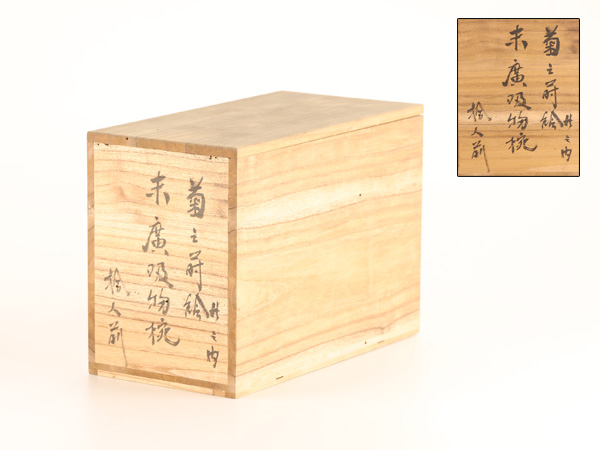 菊之蒔絵
末廣吸物椀
拾人前
菊之蒔絵
末廣吸物椀
拾人前